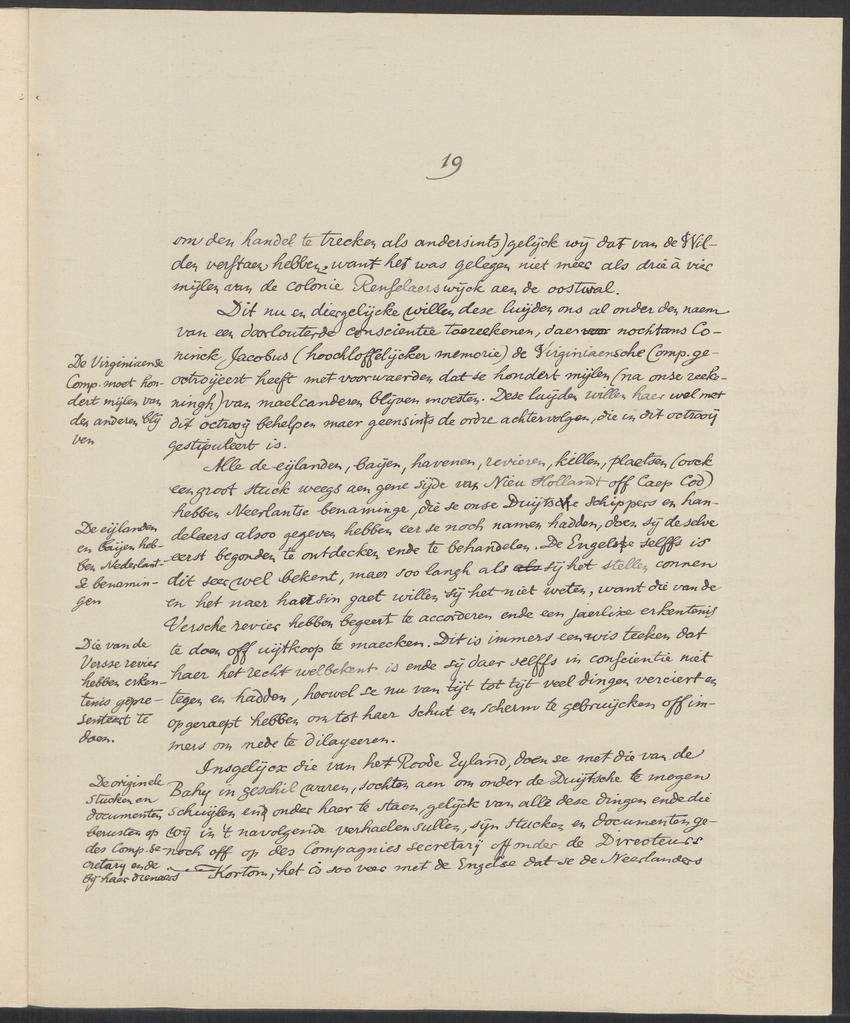 19
om den handel te trecken als andersints) gelijck wij dat van de Wil-
den verstaen hebben, want het was gelegen niet meer als drie à vier
mijlen van de colonie Renselaerswijck aen de oostwal.
Dit nu en diergelijcke willen dese luijden ons al onder den naem
van een doorlouterde conscientie toereekenen, daer nochtans Co-
ninck Jacobus (hoochloffelijcker memorie) de Virginiaensche Comp. ge-
octroijeert heeft met voorwaerden dat se hondert mijlen (na onse reeke-
ningh) van maelcanderen blijven moesten. Dese luijden willen haer wel met
dit octrooij behelpen maer geensints de ordre achtervolgen, die in dit octrooij
gestipuleert is.
De Virginiaense
Comp. moet hon-
dert mijlen van
den anderen blij
ven
Alle de eijlanden, baijen, havenen, revieren, killen, plaetsen (oock
een groot stuck weegs aen gene sijde van Nieu Hollandt off Caep Cod)
hebben Neerlantse benaminge, die se onse Duijtse schippers en han-
delaers alsoo gegeven hebben eer se noch namen hadden, doen sij deselve
eerst begonden te ontdecken ende te behandelen. De Engelse selffs is
dit seer wel bekent, maer soo langh als als sij het stellen connen
en het naer haer sin gaet willen sij het niet weten, want die van de
Versche revier hebben begeert te accorderen ende een jaerlixe erkentenis
te doen off uijtkoop te maecken. Dit is immers een wis teeken dat
haer het recht welbekent is ende sij daer selffs in conscientie niet
tegen en hadden, hoewel se nu van tijt tot tijt veel dingen verciert en
opgeraept hebben om tot haer schut en scherm te gebruijcken off im-
mers om mede te dilayeren.
De eijlanden
en baijen heb-
ben Nederlant-
se benamin-
gen
Die van de
Versse revier
hebben erken-
tenis gepre-
senteert te
doen.
Insgelijcx die van het Roode Eyland, doen se met die van de
Bahy in geschil waren, sochten aen om onder de Duijtsche te mogen
schuijlen end onder haer te staen, gelijck van alle dese dingen ende die
wij in 't navolgende verhaelen sullen, sijn stucken en documenten ge-
noch off op des Compagnies secretarij off onder de Directeurs
Kortom, het is soo veer met de Engelse dat se de Neerlanders
De originele
stucken en
documenten
berusten op
des Comp. se-
cretary ende
bij haer dienaers